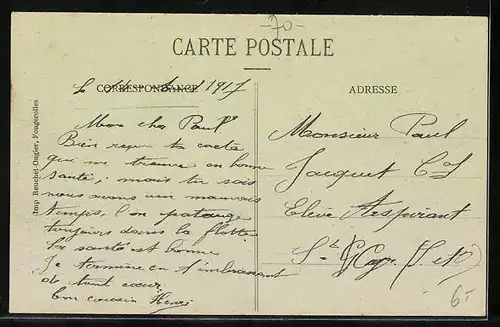 -70-
CARTE POSTALE
CORRESPONDANCE
1917
ADRESSE
Mon cher Paul
Bien reçu ta carte
qui me trouve en bonne
santé, mais tu sais
nous avons un mauvais
temps, l'on patauge
toujours dans la flotte
la santé est bonne
Je termine en t'embrassant
de tout cœur
Ton cousin Henri
Monsieur Paul
Jacquet
Eleve Aspirant
St Cyr (S. et O.)
Imp Reuchet-Ongier, Fougerolles
6-